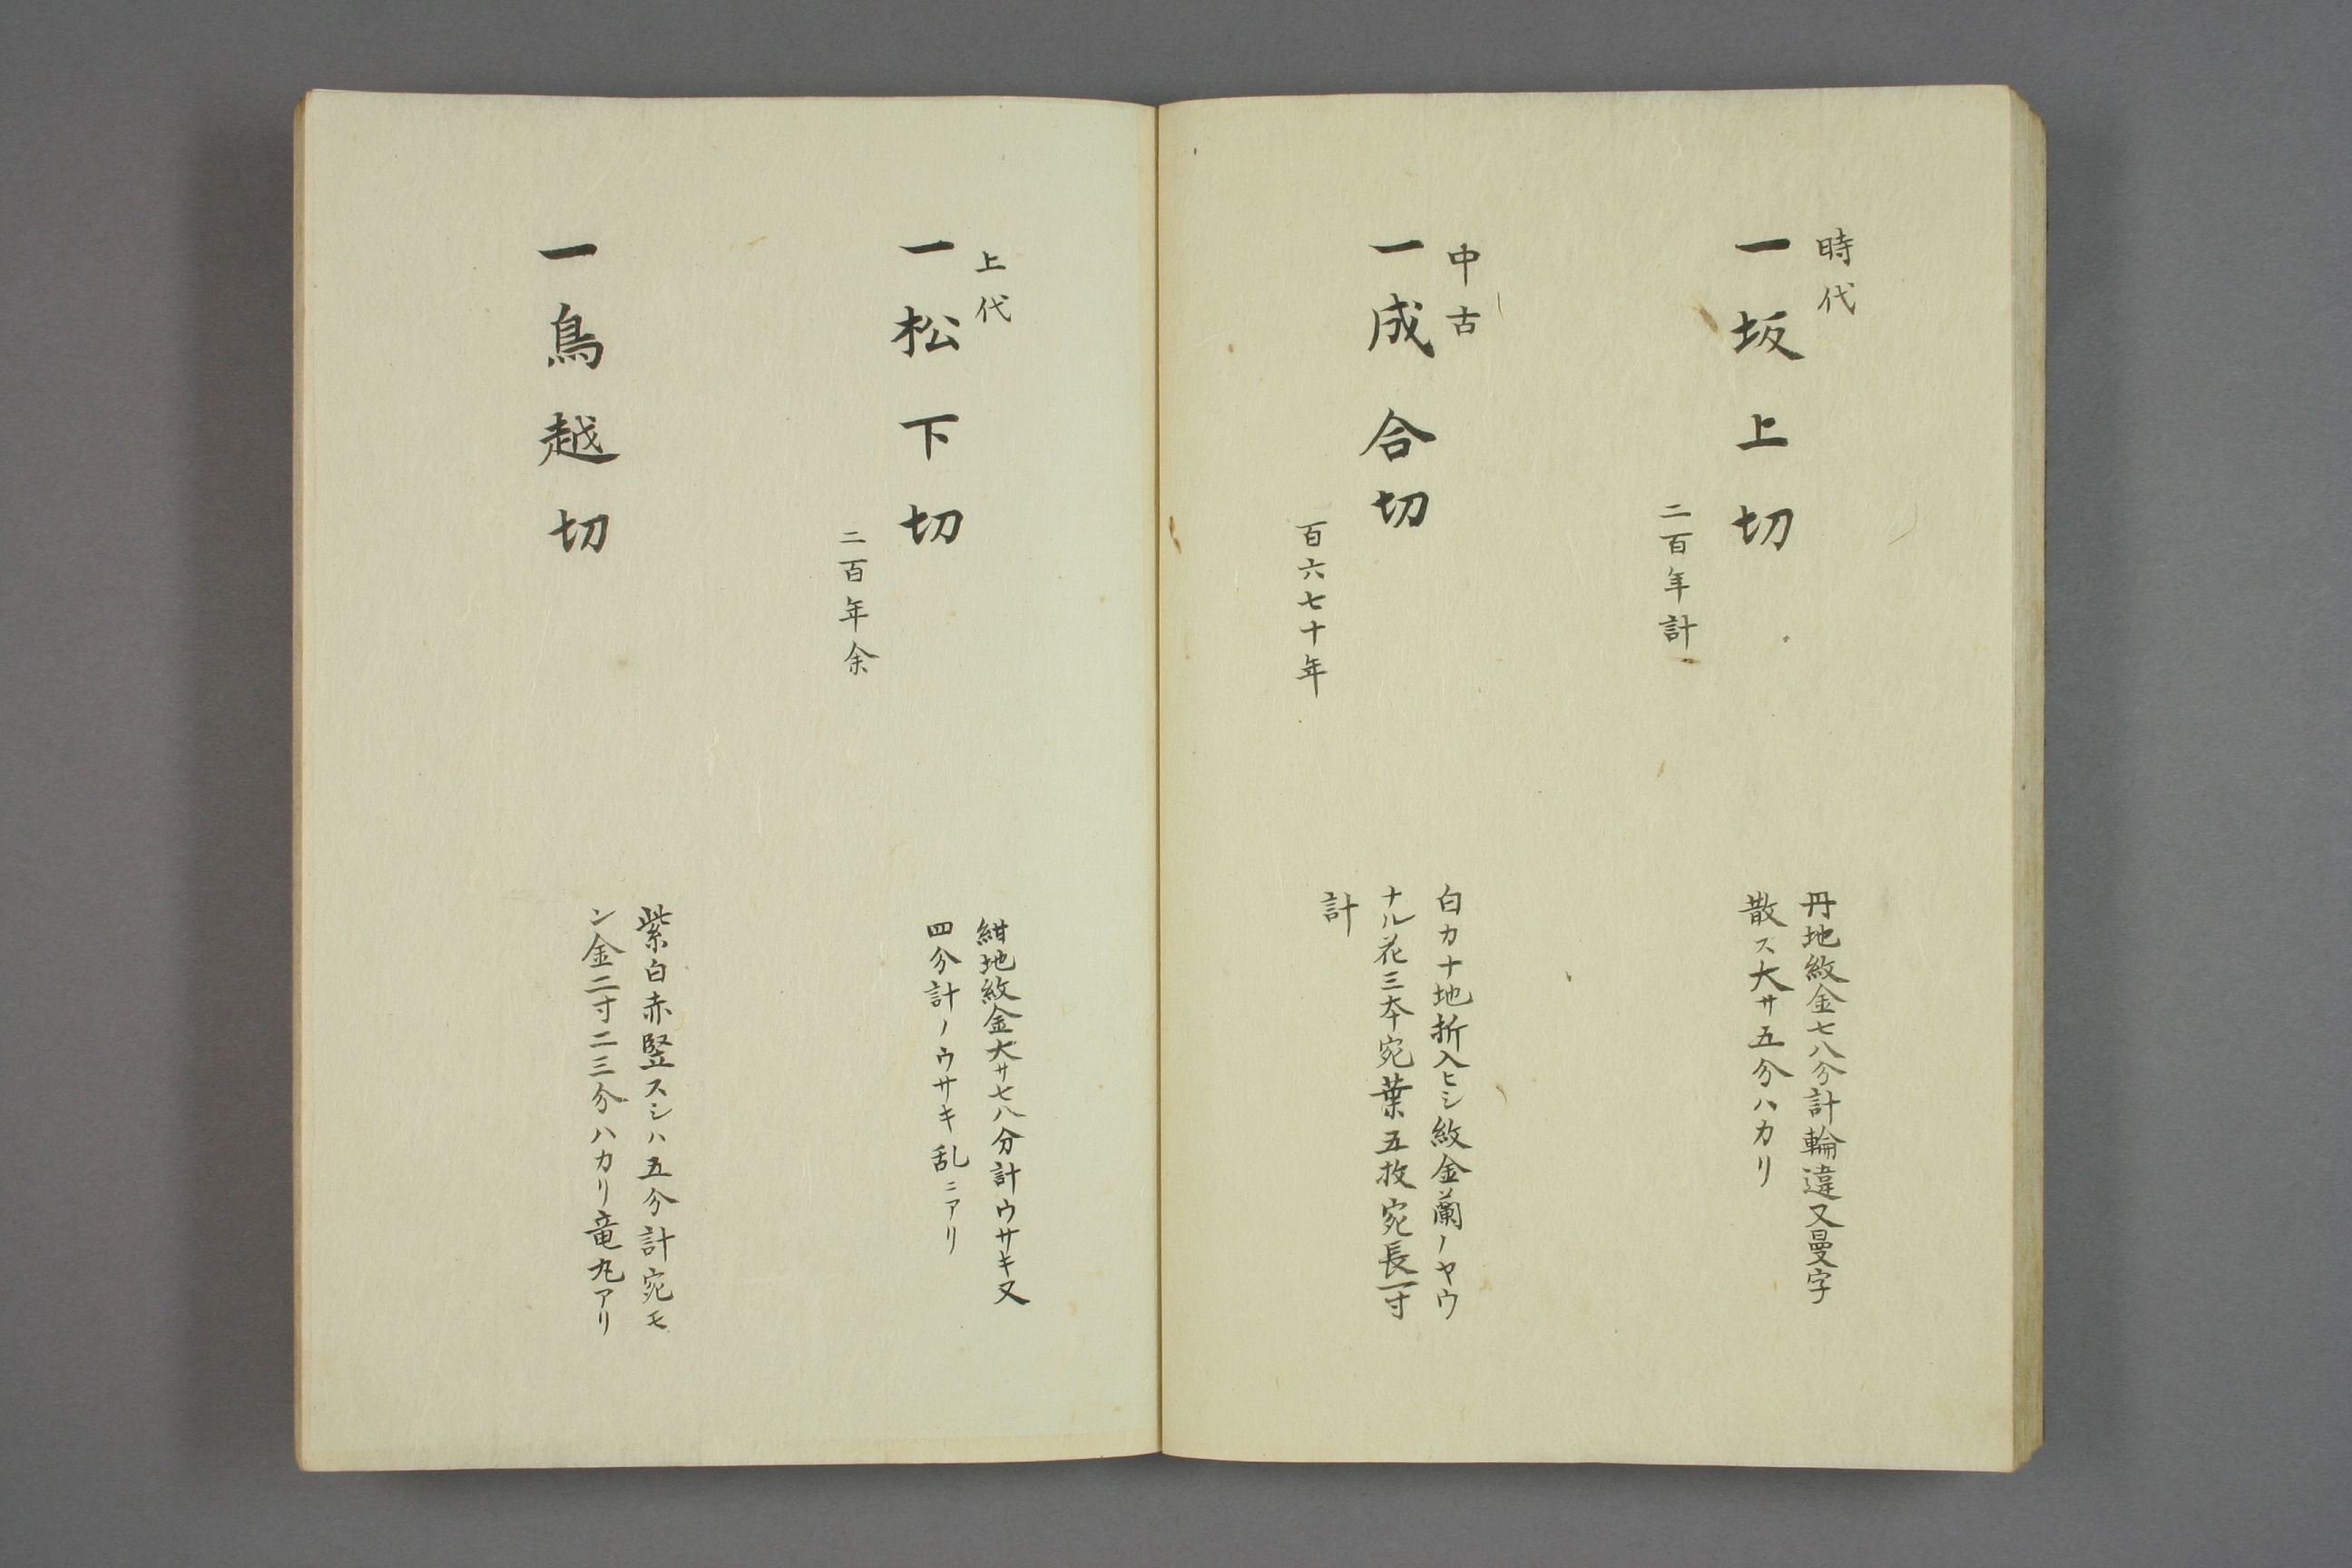 時代
一坂上切
二百年計
丹地紋金七八分計輪違又曼字
散ス大サ五分ハカリ
中古
一成合切
百六七十年
白カナ地折入ヒシ紋金蘭ノヤウ
ナル花三本宛葉五枚宛長一寸
計
上代
一松下切
二百年余
紺地紋金大サ七八分計ウサキ又
四分計ノウサキ乱ニアリ
一鳥越切
紫白赤竪スシハ五分計宛モ
ン金二寸二三分ハカリ竜丸アリ